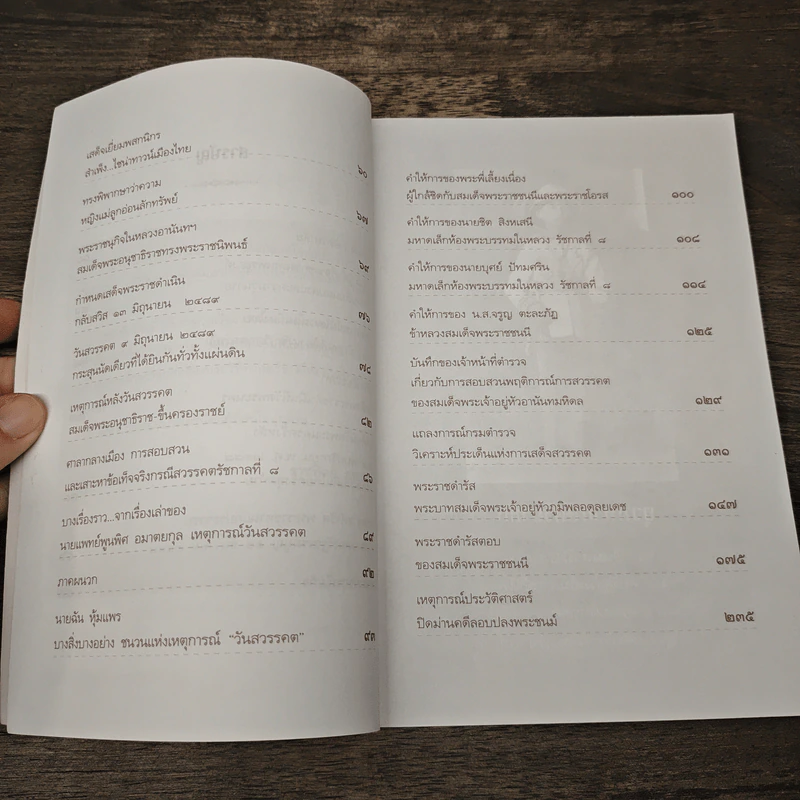 เสด็จเยี่ยมพสกนิกร
สำเพ็ง...ไชน่าทาวน์เมืองไทย ๖๐
ทรงพิพากษาความ
หญิงแม่ลูกอ่อนลักทรัพย์ ๖๗
พระราชนุกิจในหลวงอานันทฯ
สมเด็จพระอนุชาธิราชทรงพระราชนิพนธ์ ๖๙
กำหนดเสด็จพระราชดำเนิน
กลับสวิส ๑๓ มิถุนายน ๒๔๘๙ ๗๖
วันสวรรคต ๙ มิถุนายน ๒๔๘๙
กระสุนนัดเดียวที่ได้ยินกันทั่วทั้งแผ่นดิน ๗๘
เหตุการณ์หลังวันสวรรคต
สมเด็จพระอนุชาธิราช-ขึ้นครองราชย์ ๘๒
ศาลากลางเมือง การสอบสวน
และเสาะหาข้อเท็จจริงกรณีสวรรคตรัชกาลที่ ๘ ๘๖
บางเรื่องราว...จากเรื่องเล่าของ
นายแพทย์พูนพิศ อมาตยกุล เหตุการณ์วันสวรรคต ๘๙
ภาคผนวก ๙๒
นายฉัน หุ้มแพร
บางสิ่งบางอย่าง ชนวนแห่งเหตุการณ์ "วันสวรรคต" ๙๓
คำให้การของพระพี่เลี้ยงเนื่อง
ผู้ใกล้ชิดกับสมเด็จพระราชชนนีและพระราชโอรส ๑๐๐
คำให้การของนายชิต สิงหเสนี
มหาดเล็กห้องพระบรรทมในหลวง รัชกาลที่ ๘ ๑๐๘
คำให้การของนายบุศย์ ปัทมศริน
มหาดเล็กห้องพระบรรทมในหลวง รัชกาลที่ ๘ ๑๑๔
คำให้การของ น.ส.จรูญ ตะละภัฏ
ข้าหลวงสมเด็จพระราชชนนี ๑๒๕
บันทึกของเจ้าหน้าที่ตำรวจ
เกี่ยวกับการสอบสวนพฤติการณ์การสวรรคต
ของสมเด็จพระเจ้าอยู่หัวอานันทมหิดล ๑๒๙
แถลงการณ์กรมตำรวจ
วิเคราะห์ประเด็นแห่งการเสด็จสวรรคต ๑๓๑
พระราชดำรัส
พระบาทสมเด็จพระเจ้าอยู่หัวภูมิพลอดุลยเดช ๑๔๗
พระราชดำรัสตอบ
ของสมเด็จพระราชชนนี ๑๗๕
เหตุการณ์ประวัติศาสตร์
ปิดม่านคดีลอบปลงพระชนม์ ๒๓๕